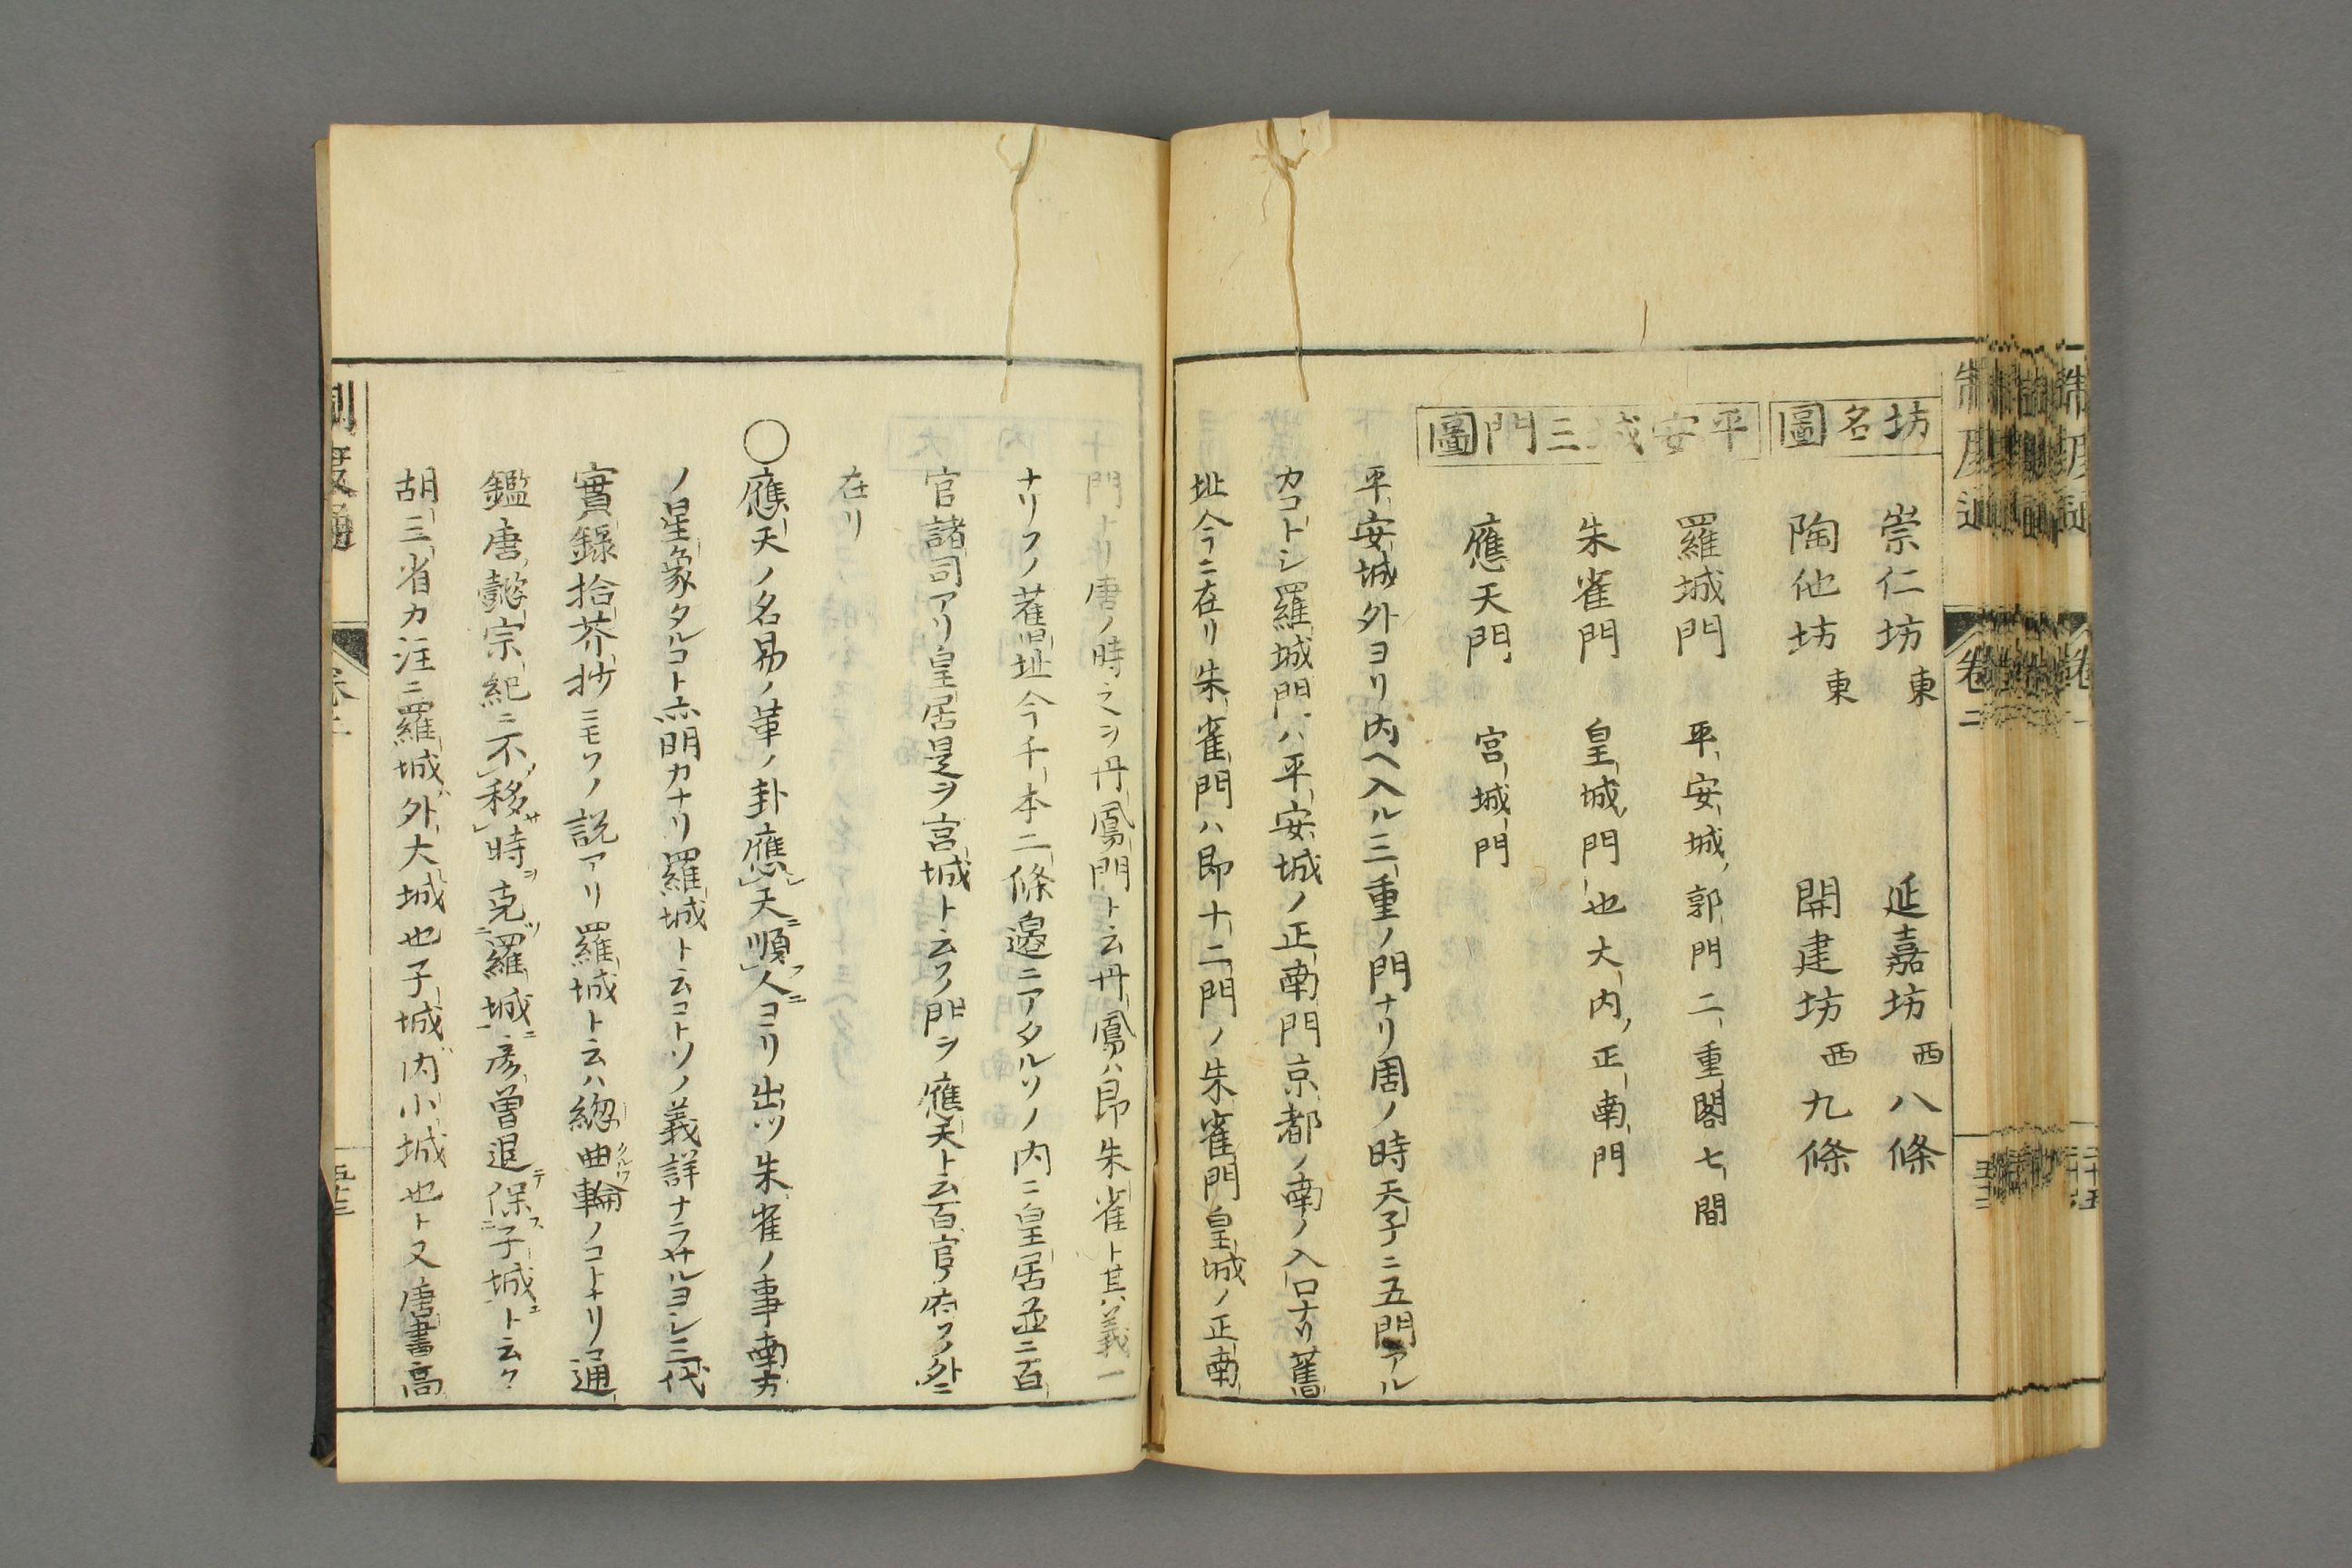 坊名圖
崇仁坊 東 延嘉坊 西 八條
陶他坊 東 開建坊 西 九條
平安城三門圖
羅城門 平安城郭門二重閣七間
朱雀門 皇城門也大内正南門
應天門 宮城門
平安城外ヨリ内ヘ入ル三重ノ門ナリ周ノ時天子ニ五門アル
カコトシ羅城門ハ平安城ノ正南門京都ノ南ノ入口ナリ舊
址今ニ在リ朱雀門ハ即十二門ノ朱雀門皇城ノ正南
門ナリ唐ノ時之ヲ丹鳳門ト云丹鳳ハ即朱雀ト其義一
ナリソノ舊址今千本二條邉ニアタルソノ内ニ皇居並ニ百
官諸司アリ皇居是ヲ宮城ト云ソノ門ヲ應天ト云百官府ソノ外ニ
在リ
○應天ノ名易ノ革ノ卦應天ニ順フ人ニヨリ出ツ朱雀ノ事南方
ノ星象タルコト亦明カナリ羅城ト云コトソノ義詳ナラサルヨシ三代
實録拾芥抄ニモソノ説アリ羅城ト云ハ緫曲輪クルワノコトナリ通
鑑唐懿宗紀ニ不移サ時ヲ克ツ羅城ニ彦曽退テ保ス子城ニト云々
胡三省カ注ニ羅城ハ外大城也子城ハ内小城也ト又唐書高
制度通
卷二
五十二
制度通
卷二
五十三